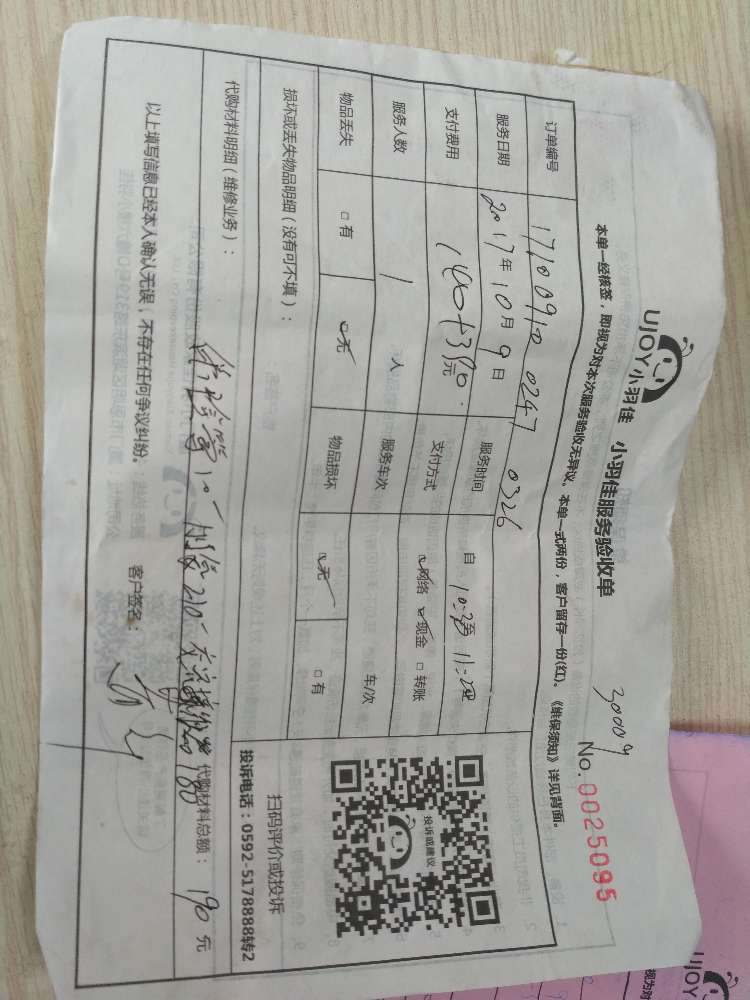 UJOY小羽佳 小羽佳服务验收单
30009
No.0025095
本单一经核签，即视为对本次服务验收无异议、本单一式两份，客户留存一份(红)、《维保须知》详见背面。
订单编号 171009100247 0326
服务日期 2017年10月9日 服务时间 自10:30至11:20
支付费用 140+390元 支付方式 ☑网络 ☑现金 □转账
服务人数 1人 服务车次 车/次
物品丢失 □有 ☑无 物品损坏 ☑无 □有
损坏或丢失物品明细（没有可不填）：
代购材料明细（维修业务）：
210 交流接触器180
代购材料总额：190元
以上填写信息已经本人确认无误，不存在任何争议纠纷。 客户签名：
投诉或建议
扫码评价或投诉
投诉电话：0592-5178888转2
UJOY